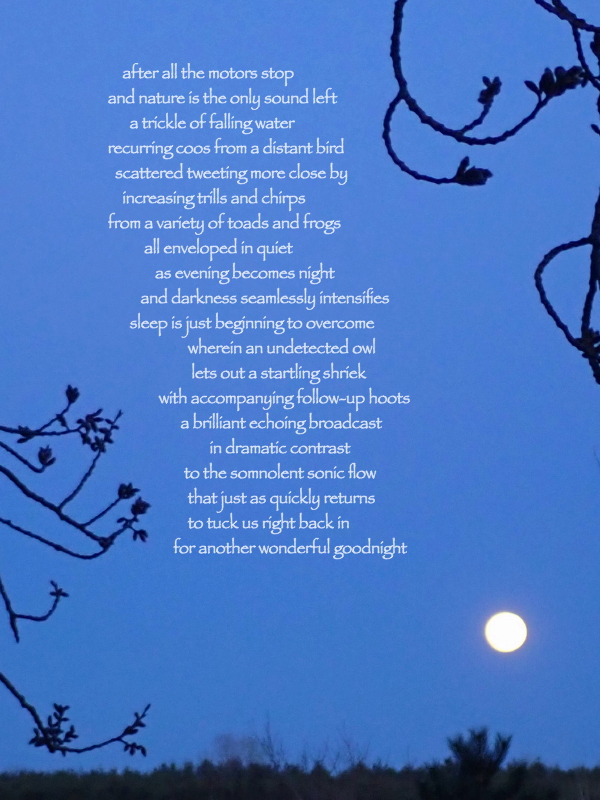 after all the motors stop
and nature is the only sound left
a trickle of falling water
recurring coos from a distant bird
scattered tweeting more close by
increasing trills and chirps
from a variety of toads and frogs
all enveloped in quiet
as evening becomes night
and darkness seamlessly intensifies
sleep is just beginning to overcome
wherein an undetected owl
lets out a startling shriek
with accompanying follow-up hoots
a brilliant echoing broadcast
in dramatic contrast
to the somnolent sonic flow
that just as quickly returns
to tuck us right back in
for another wonderful goodnight